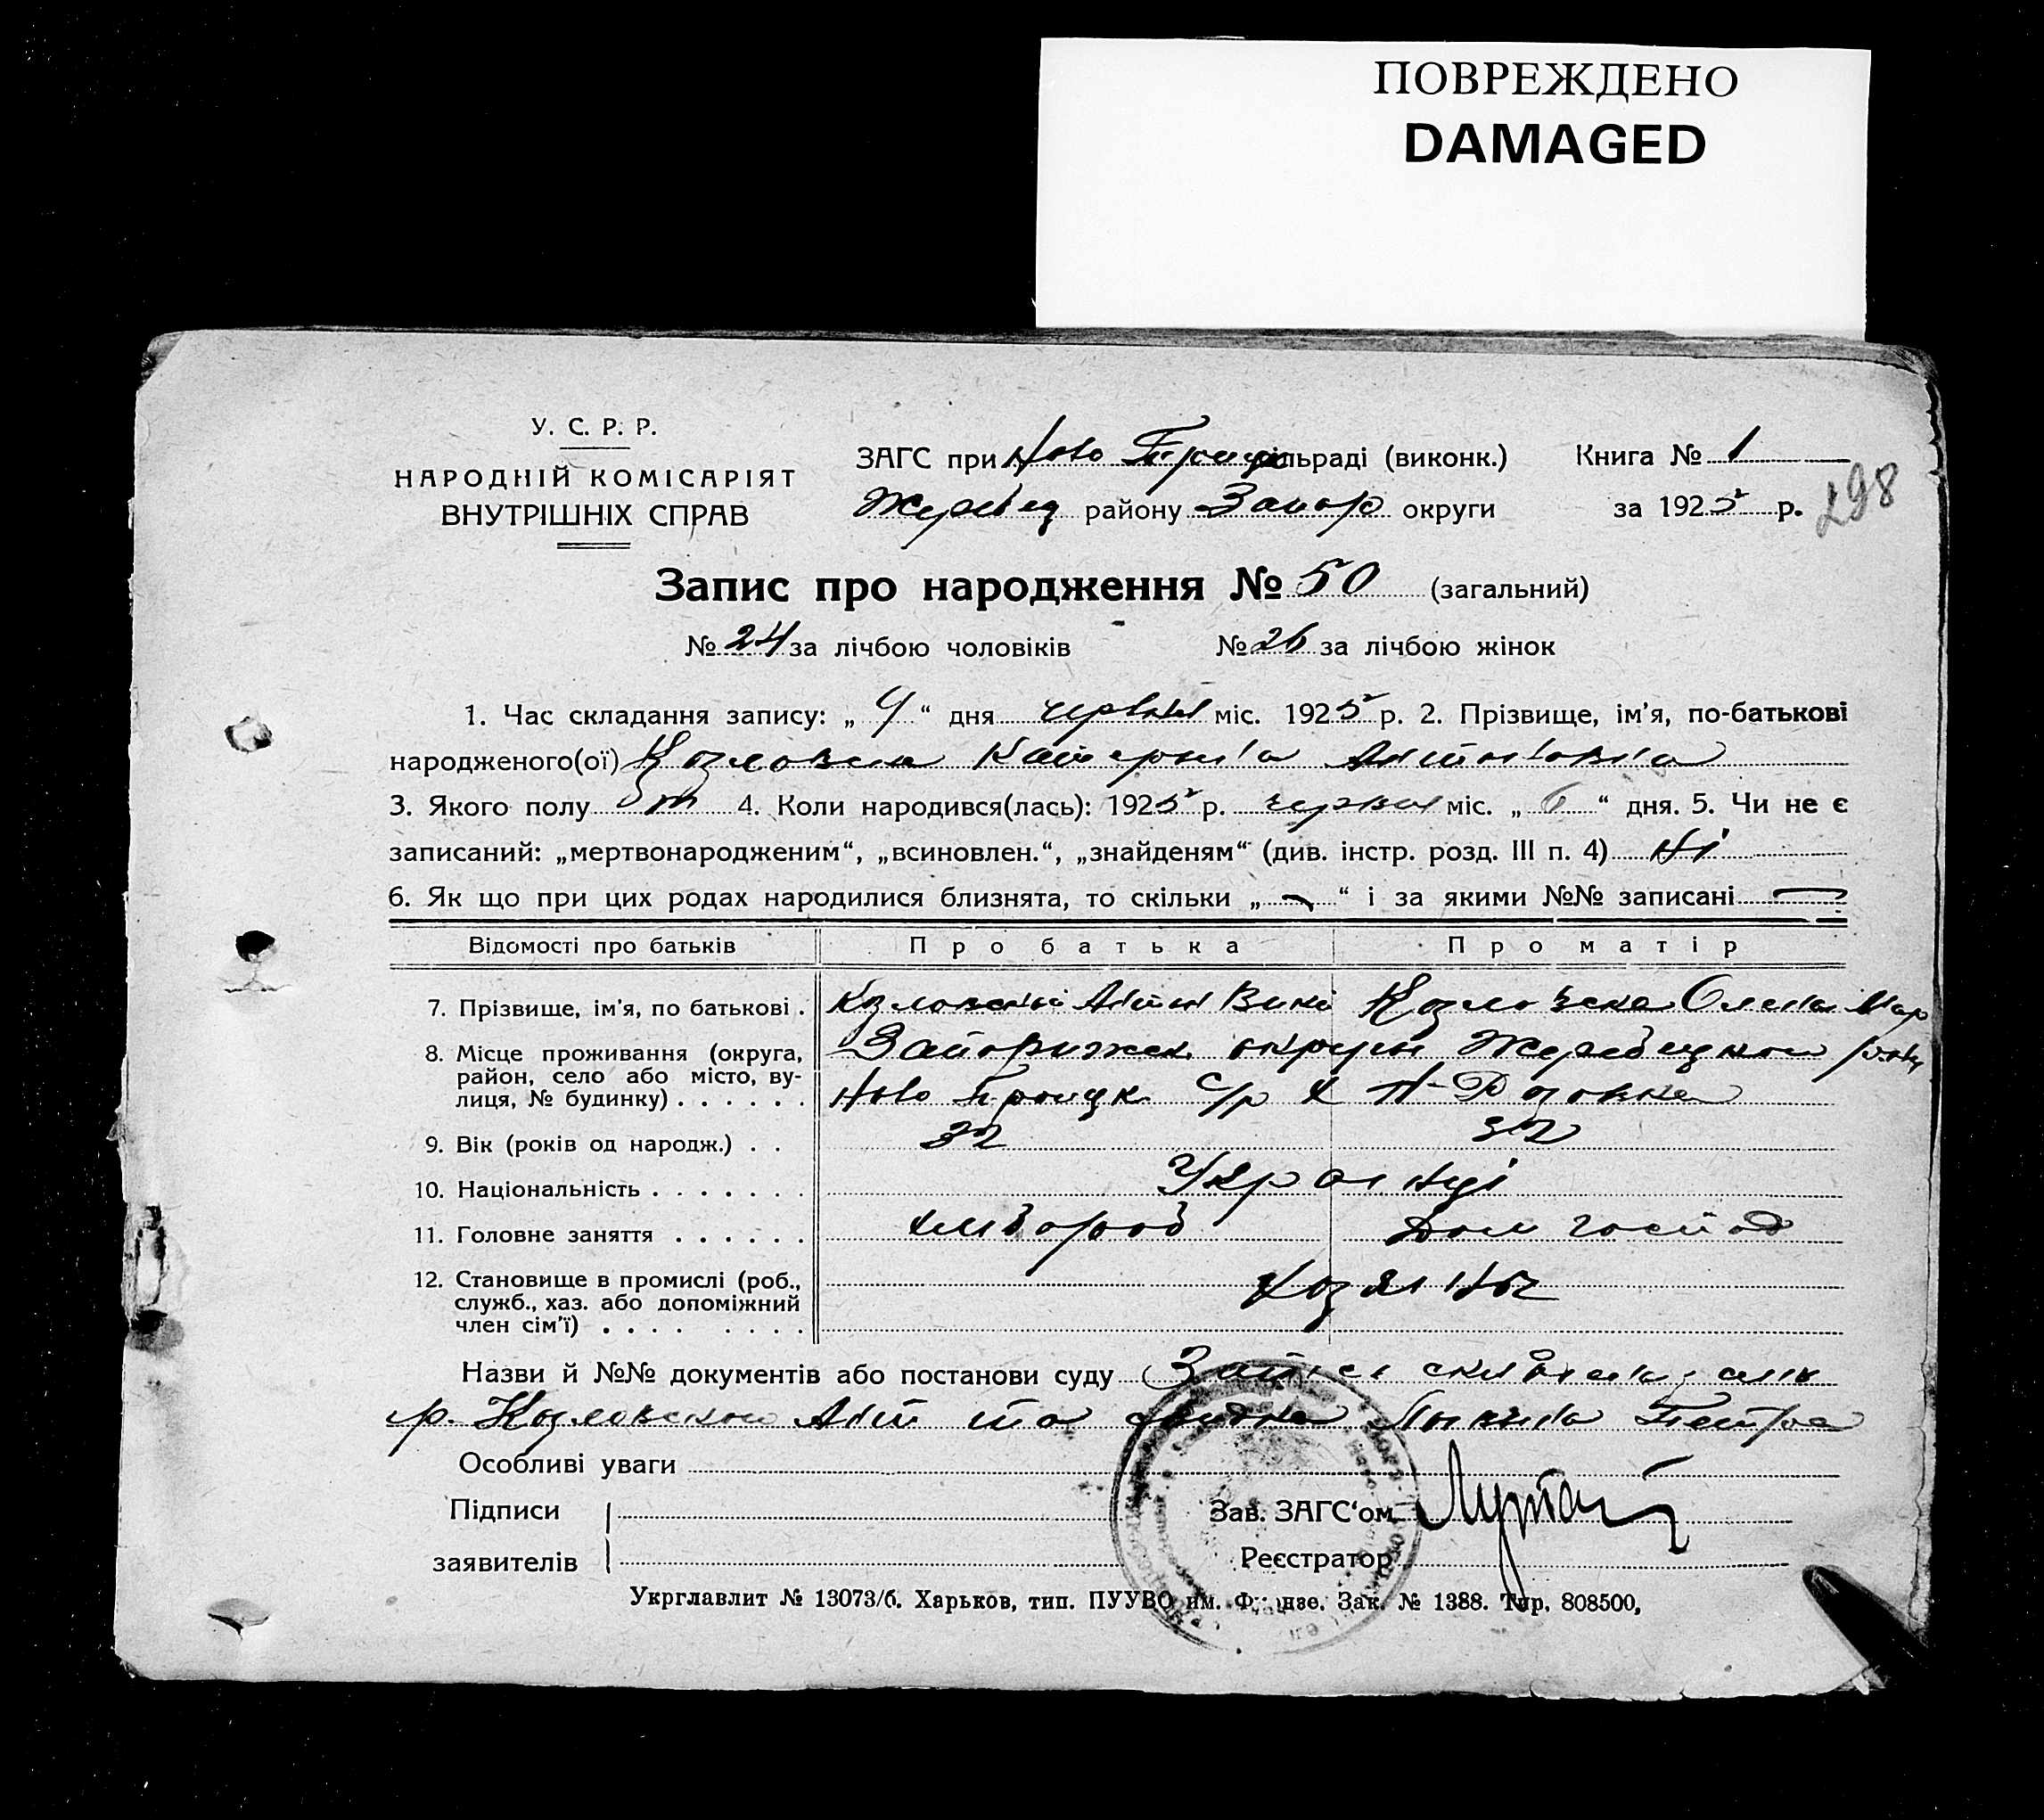 ПОВРЕЖДЕНО
DAMAGED
У. С. Р. Р.
НАРОДНІЙ КОМІСАРІЯТ
ВНУТРІШНІХ СПРАВ
ЗАГС при Ново Троицк сільраді (виконк.) Книга № 1
Жеребец району Запор округи за 1925 р.
298
Запис про народження № 50 (загальний)
№ 24 за лічбою чоловіків № 26 за лічбою жінок
1. Час складання запису: „ 9 “ дня червня міс. 1925 р. 2. Прізвище, ім'я, по-батькові
народженого(ої) Козловска Катерина Антонівна
3. Якого полу 4. Коли народився(лась): 1925 р. червня міс. „ 6 “ дня. 5. Чи не є
записаний: „мертвонародженим“, „всиновлен.“, „знайденям“ (див. інстр. розд. III п. 4) Ні
6. Як що при цих родах народилися близнята, то скільки „ — “ і за якими №№ записані —
Відомості про батьків Про батька Про матір
7. Прізвище, ім'я, по батькові . Козловский Антон Козловска Олена Мар
8. Місце проживання (округа, район, село або місто, вулиця, № будинку) . . . . . . Запорижск округи Жеребецкого
Ново Троицк С/р Х
9. Вік (років од народж.) . . 32 32
10. Національність . . . . . . . Українці
11. Головне заняття . . . . . . хлибороб Дом господ
12. Становище в промислі (роб., служб., хаз. або допоміжний член сім'ї) . . . . . . . . Хозяини
Назви й №№ документів або постанови суду Запис
гр. Козловского Ант та свидка Петра
Особливі уваги
Підписи
заявителів
Зав. ЗАГС'ом
Реєстратор
Укрглавлит № 13073/б. Харьков, тип. ПУУВО им. Фрунзе. Зак. № 1388. Тир. 808500,